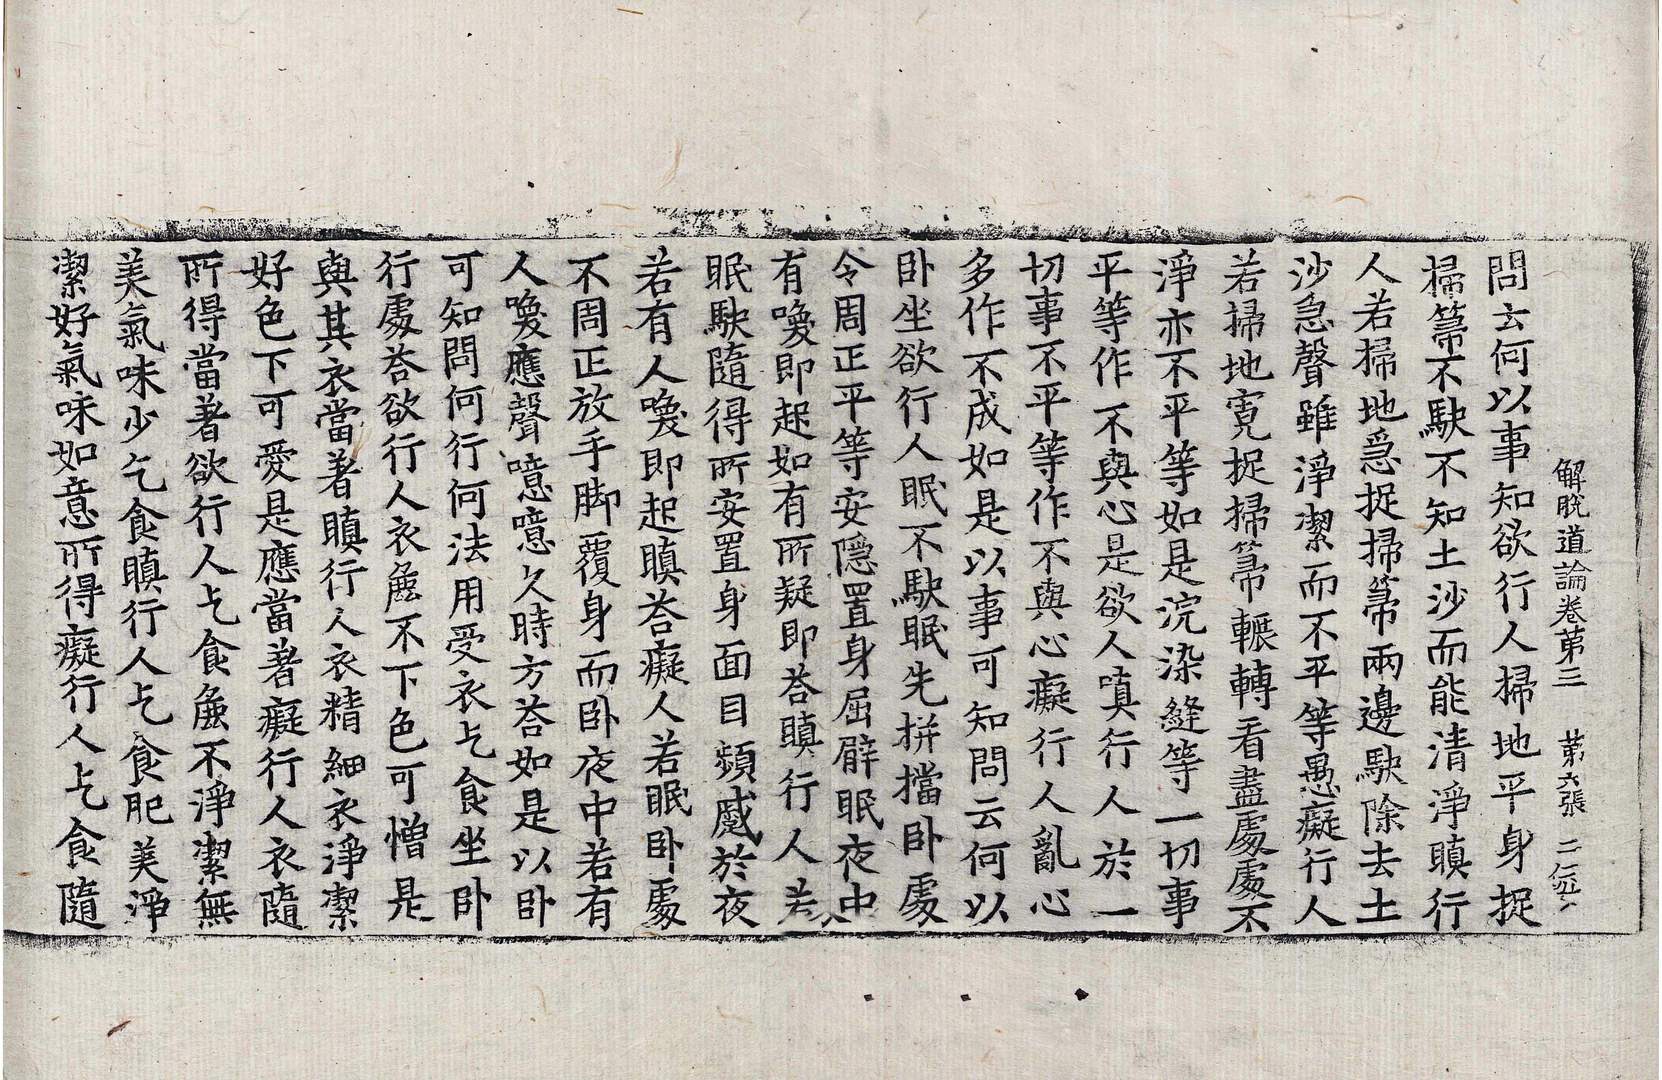 解脫道論卷第三　第六張　二
問云何以事知欲行人掃地平身捉
掃箒不駛不知土沙而能清淨瞋行
人若掃地急捉掃箒兩邊駛除去土
沙急聲雖淨潔而不平等愚癡行人
若掃地寬捉掃箒輾轉看盡處處不
淨亦不平等如是浣染縫等一切事
平等作不與心是欲人嗔行人於一
切事不平等作不與心癡行人亂心
多作不成如是以事可知問云何以
卧坐欲行人眠不駛眠先拼擋卧處
令周正平等安隱置身屈臂眠夜中
有喚即起如有所疑即荅瞋行人若
眠駛隨得所安置身面目頻慼於夜
若有人喚即起瞋荅癡人若眠卧處
不周正放手脚覆身而卧夜中若有
人喚應聲噫噫久時方荅如是以卧
可知問何行何法用受衣乞食坐卧
行處荅欲行人衣麁不下色可憎是
與其衣當著瞋行人衣精細衣淨潔
好色下可愛是應當著癡行人衣隨
所得當著欲行人乞食麁不淨潔無
美氣味少乞食瞋行人乞食肥美淨
潔好氣味如意所得癡行人乞食隨